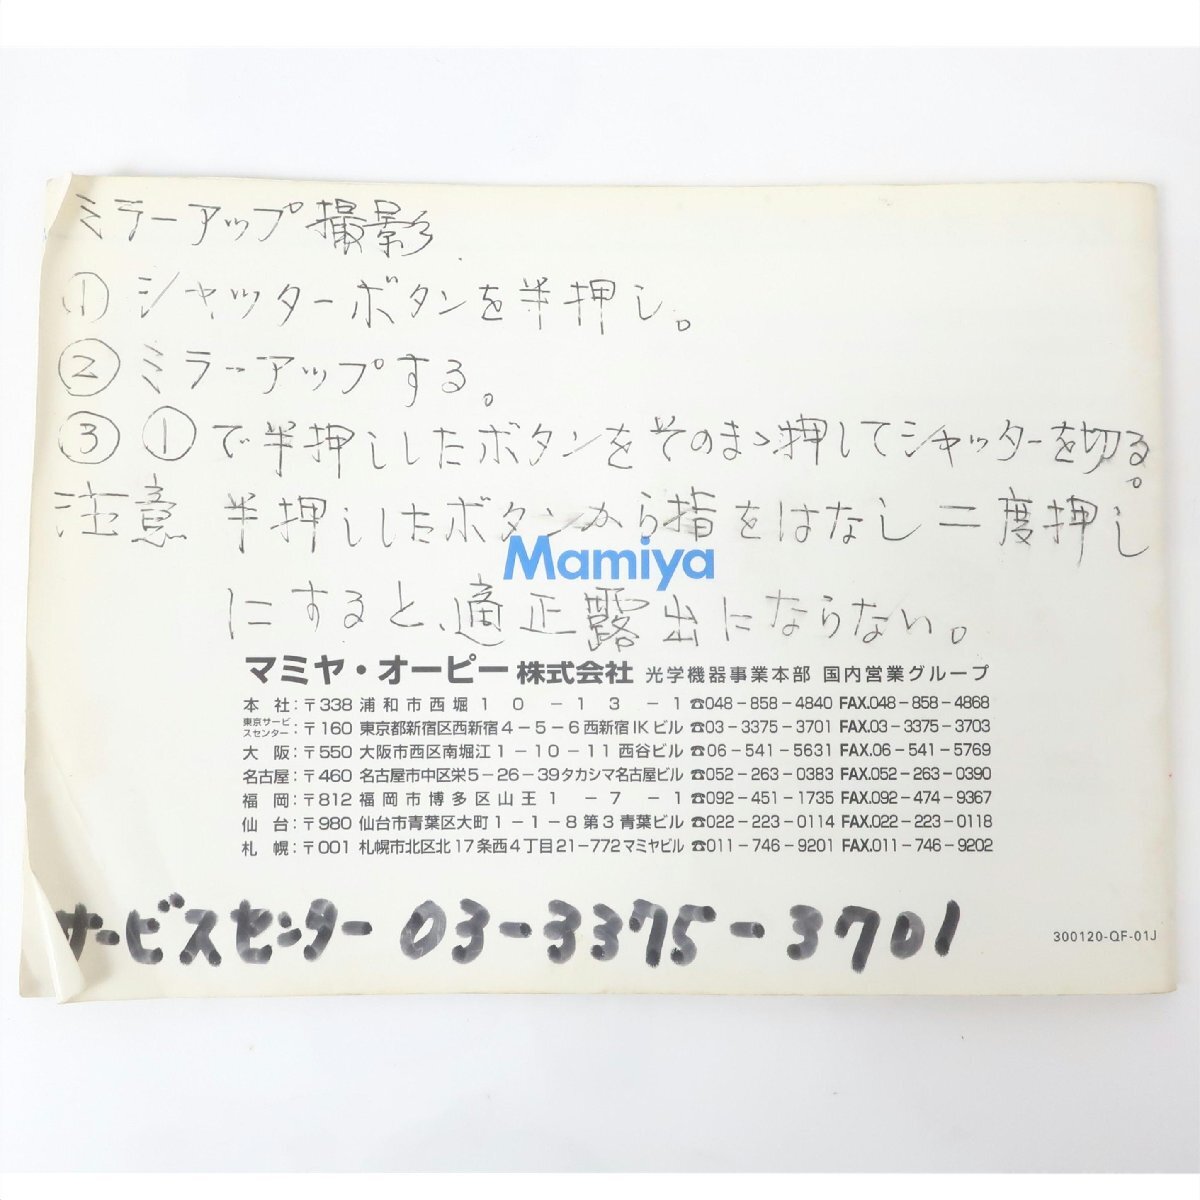 ミラーアップ撮影
① シャッターボタンを半押し。
② ミラーアップする。
③ ①で半押ししたボタンをそのまゝ押してシャッターを切る。
注意 半押ししたボタンから指をはなし二度押し
Mamiya
にすると、適正露出にならない。
マミヤ・オーピー株式会社 光学機器事業本部 国内営業グループ
本社:〒338 浦和市西堀10-13-1 ☎048-858-4840 FAX.048-858-4868
東京サービスセンター:〒160 東京都新宿区西新宿4-5-6西新宿IKビル ☎03-3375-3701 FAX.03-3375-3703
大阪:〒550 大阪市西区南堀江1-10-11西谷ビル ☎06-541-5631 FAX.06-541-5769
名古屋:〒460 名古屋市中区栄5-26-39タカシマ名古屋ビル ☎052-263-0383 FAX.052-263-0390
福岡:〒812 福岡市博多区山王1-7-1 ☎092-451-1735 FAX.092-474-9367
仙台:〒980 仙台市青葉区大町1-1-8第3青葉ビル ☎022-223-0114 FAX.022-223-0118
札幌:〒001 札幌市北区北17条西4丁目21-772マミヤビル ☎011-746-9201 FAX.011-746-9202
サービスセンター 03-3375-3701
300120-QF-01J